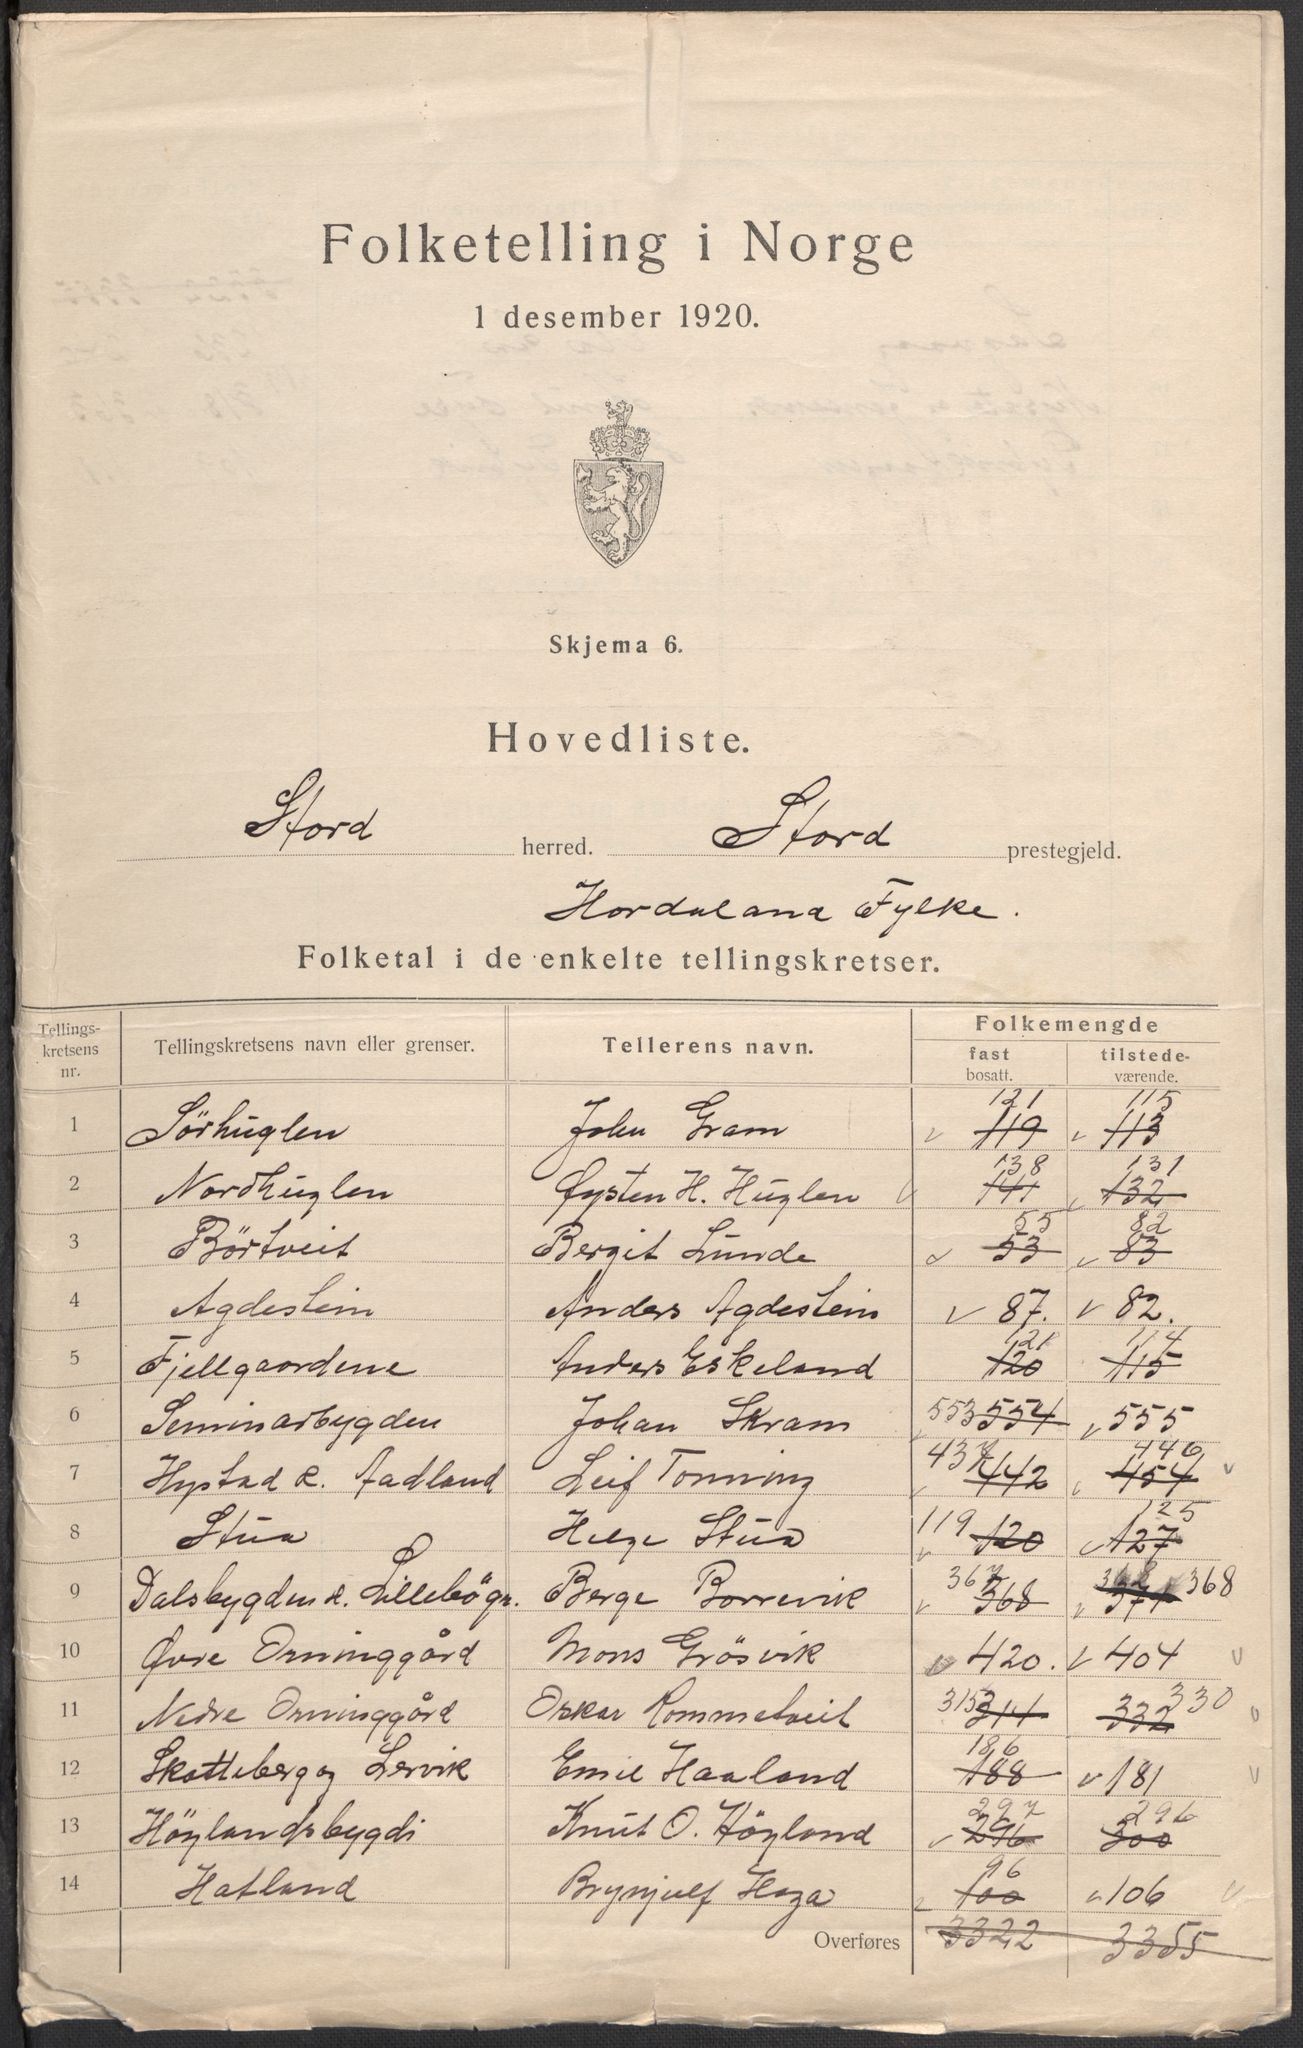 Folketelling i Norge
1 desember 1920.
Skjema 6.
Hovedliste.
Stord herred. Stord prestegjeld.
Hordaland Fylke.
Folketal i de enkelte tellingskretser.
Tellings-kretsens nr. Tellingskretsens navn eller grenser. Tellerens navn. Folkemengde
fast bosatt. tilstede-værende.
121 115
1 Sörhuglen John Gram 119 113
138 131
2 Nordhuglen Øysten H. Huglen 141 132
55 82
3 Börtveit Bergit Lunde 53 83
4 Agdestein Anders Agdestein 87. 82.
121 114
5 Fjellgaardene Anders Eskeland 120 115
6 Seminarbygden Johan Skram 553 554 555
437 446
7 Hystad & Aadland Leif Tonning 442 454
119 125
8 Stua Helge Stua 120 127
367 368
9 Dalsbygden &. Lillebögr. Berge Borrevik 368 371 368
10 Øvre Orninggård Mons Grösvik 420. 404
11 Nedre Orninggård Oskar Rommetveit 315 314 332 330
186
12 Skotteberg og Lervik Emil Haaland 188 181
297 296
13 Höylandsbygdi Knut O. Höyland 296 300
96
14 Hatland Brynjulf Haga 100 106
Overføres 3322 3355